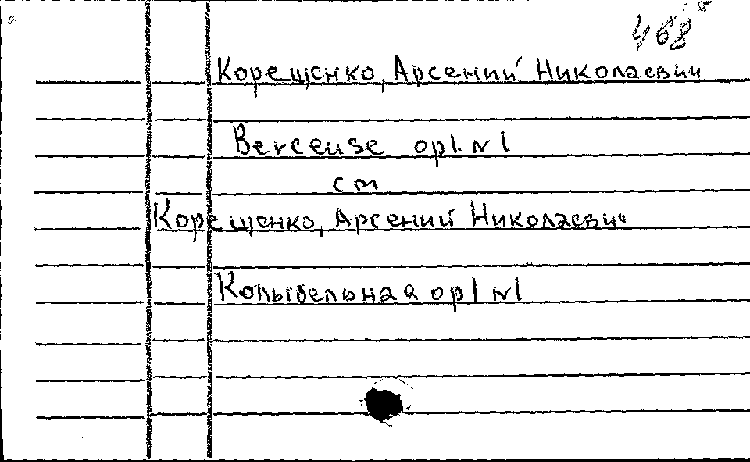 468
Корещенко, Арсений Николаевич
Berceuse op1. N1
см
Корещенко, Арсений Николаевич
Колыбельная op1 N1